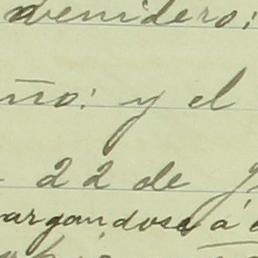 venidero:
ño: y el
22 de
argandose á